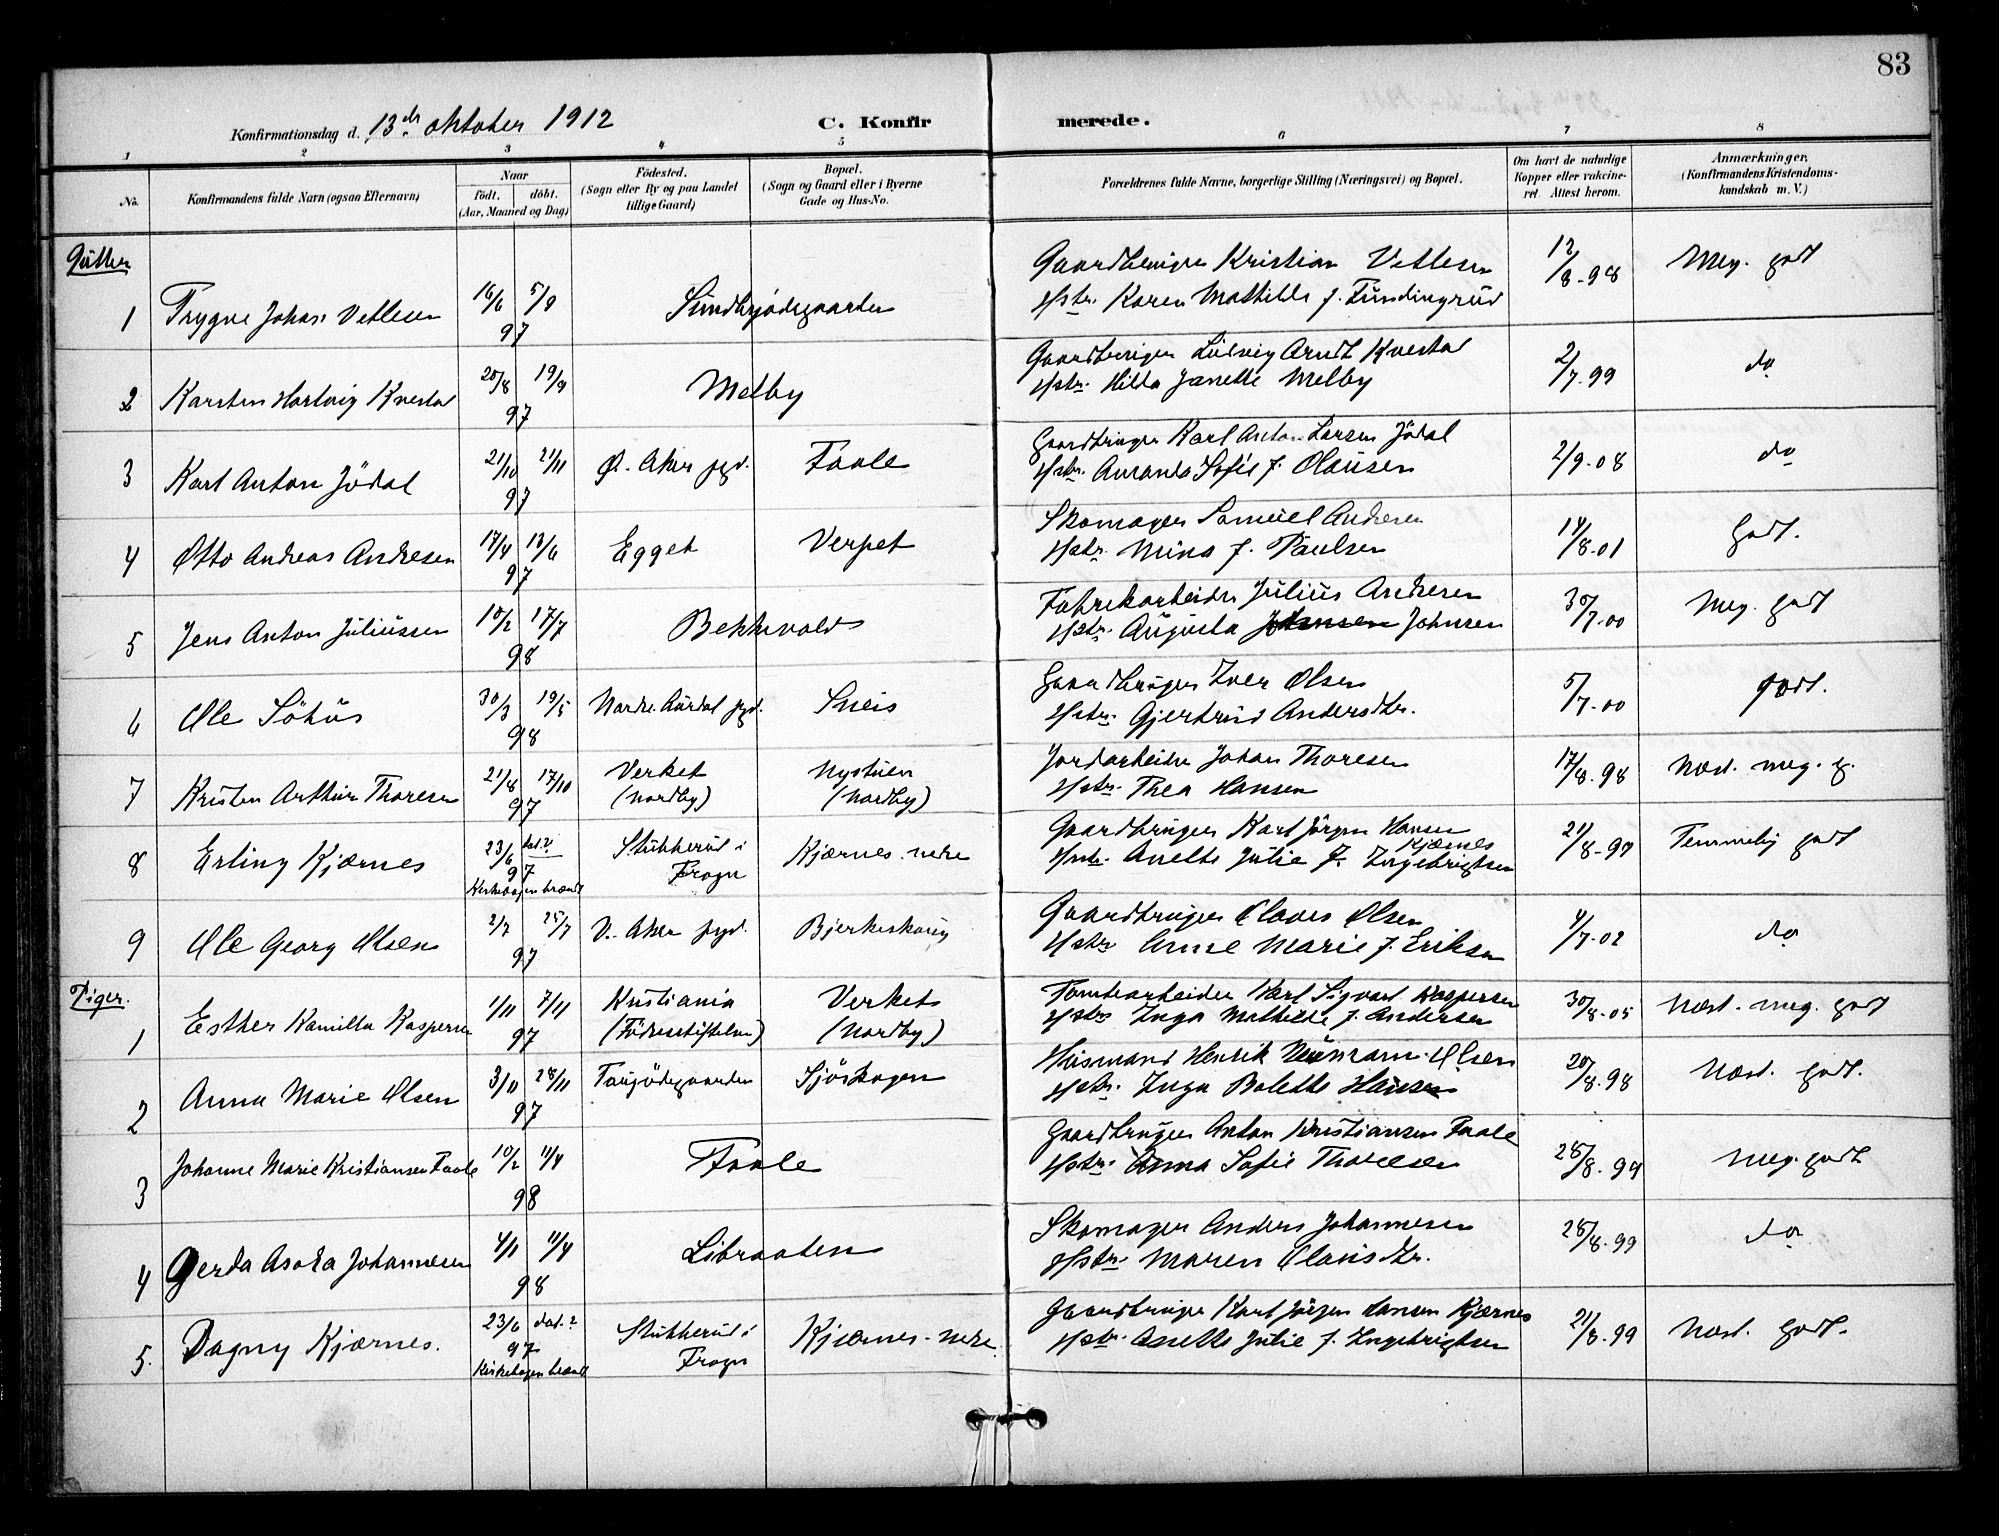 83
Konfirmationsdag d. 13de oktober 1912 C. Konfirmerede.
1 2 3 4 5 6 7 8
No. Konfirmandens fulde Navn (ogsaa Efternavn) Naar født. døbt. (Aar, Maaned og Dag) Födested. (Sogn eller By og paa Landet tillige Gaard) Bopæl. (Sogn og Gaard eller i Byerne Gade og Hus-No. Forældrenes fulde Navne, borgerlige Stilling (Næringsvei) og Bopæl. Om havt de naturlige Kopper eller vakcineret. Attest herom. Anmærkninger. (Konfirmandens Kristendomskundskab m. V.)
Gutter
1 Trygve Johan Vetlesen 16/6 5/9 97 Sundbyødegaarden Gaardbruger Kristian Vetlesen Hstr. Karen Mathilde f. 12/8-98 Meg. godt
2 Karsten Hartvig Kvestad 20/8 19/9 97 Melby Gaardbruger Ludvig Arndt Kvestad Hstr. Hilda Janette Melby 2/7.99 do
3 Karl Anton Jödal 21/10 21/11 97 Ø. Aker pgd. Faale Gaardbruger Karl Anton Larsen Jödal Hstr. Amanda Sofie f. Olausen 2/9.08 do
4 Otto Andreas Andresen 17/4 13/6 97 Egget Verpet Skomager Samuel Andresen Hstr. Mina f. Paulsen 14/8.01 Godt.
5 Jens Anton Juliussen 10/2 17/7 98 Bekkevold Fabrikarbeider Julius Andresen Hstr. Augusta Johnsen 30/7.00 Meg. godt
6 Ole Söhus 30/3 19/5 98 Nordre Aurdal pgd. Sneis Gaardbruger Iver Olsen Hstr. Gjertrud Andersdtr. 5/7.00 godt.
7 Kristen Arthur Thoresen 21/8 17/10 97 Verket (Nordby) Nystuen (Nordby) Jordarbeider Johan Thoresen Hstr. Thea Hansen 17/8.98 Næst. meg. g.
8 Erling Kjærnes 23/6 dat.? 97 Kirkebogen brændt Stubberud i Frogn Kjærnes nedre Gaardbruger Karl Jörgen Hansen Kjærnes Hstr. Anette Julie f. Ingebrigtsen 21/8-99 Temmelig godt
9 Ole Georg Olsen 2/7 25/7 97 V. Aker pgd. Bjerkeskoug Gaardbruger Olaves Olsen Hstr Anne Marie f. Eriksen 4/7.02 do
Piger.
1 Esther Kamilla Kaspersen 1/11 7/11 97 Kristiania (Födselsstiftelsen) Verket (Nordby) Tomtearbeider Karl Sigvart Kaspersen Hstr Inga Mathilde f. Andersen 30/8-05 Næst. meg. godt
2 Anna Marie Olsen 3/11 28/11 97 Taugödegaarden Sjöskogen Husmand Henrik Neumann Olsen Hstr. Inga Bolette Hansen 20/8.98 Næst. godt.
3 Johanne Marie Kristiansen Faale 10/2 11/4 98 Faale Gaardbruger Anton Kristiansen Faale Hstr. Anna Sofie Thoresen 28/8.99 Meg. godt
4 Gerda Asora Johannesen 4/1 11/4 98 Libraaten Skomager Anders Johannesen Hstr. Maren Olausdtr. 28/8.99 do
5. Dagny Kjærnes. 23/6 dat.? 97 Kirkebogen brændt Stubberud i Frogn Kjærnes-nedre Gaardbruger Karl Jörgen Hansen Kjærnes Hstr. Anette Julie f. Ingebrigtsen 21/8.99 Næst. godt.